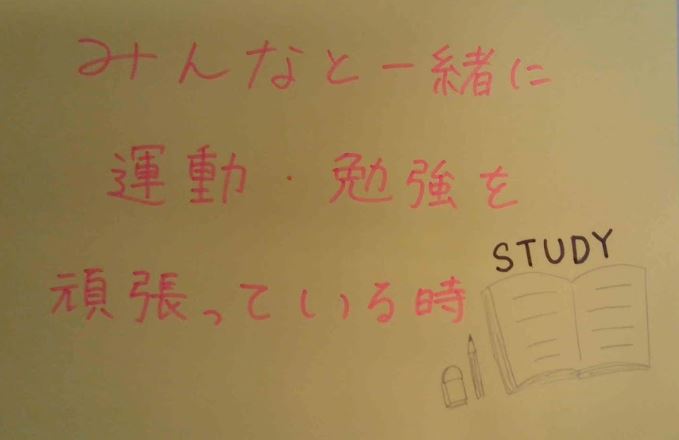 みんなと一緒に
運動・勉強を
頑張っている時
STUDY